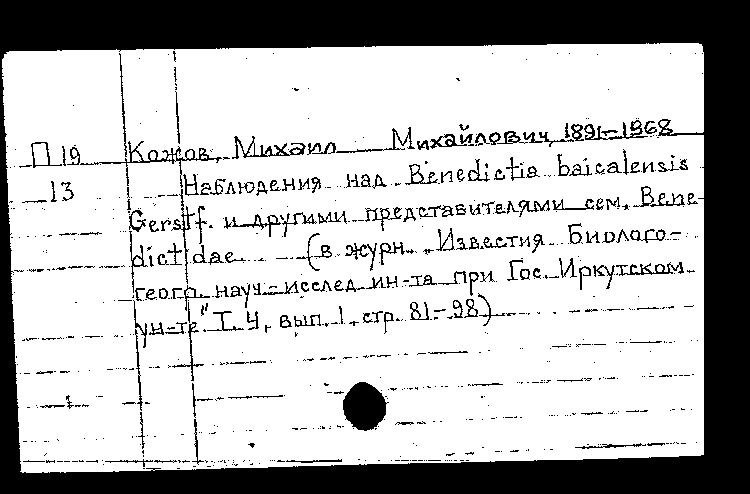 П 19 Кожов, Михаил Михайлович, 1891-1968
13 Наблюдения над Benedictia baicalensis
Gerstf. и другими представителями сем. Bene-
dictidae (в журн. „Известия Биолого-
геогр. науч.-исслед. ин-та при Гос. Иркутском
ун-те" Т. 4, вып. 1, стр. 81-98)